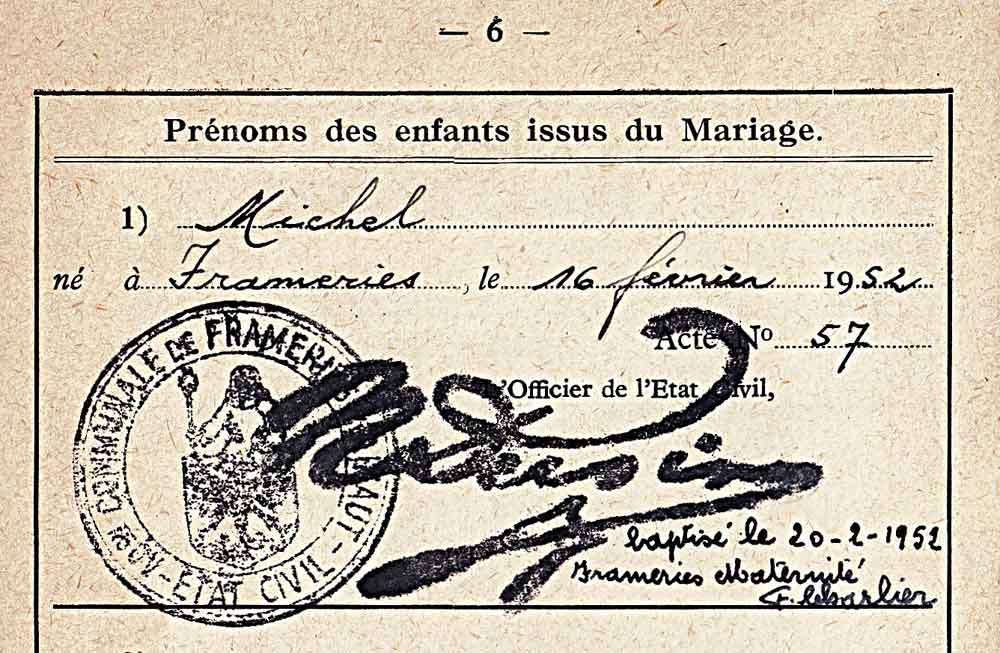 — 6 —
Prénoms des enfants issus du Mariage.
1) Michel
né à Frameries, le 16 février 1952
Acte No 57
l'Officier de l'Etat Civil,
COMMUNALE DE FRAMERI AUT - ETAT CIVIL
baptisé le 20-2-1952
Frameries Maternité